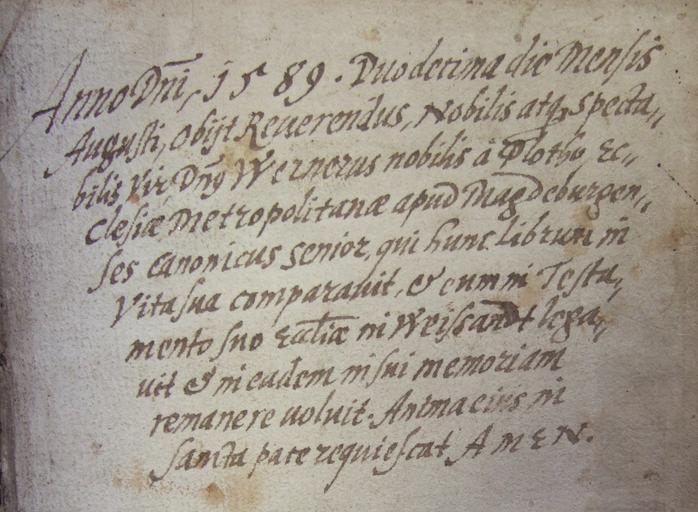 Anno Dñi, 1589. Duodecima die Mensis
Augusti, Obijt Reuerendus, Nobilis atq, Specta„
bilis Vir Dnꝰ Wernerus nobilis à Plotho, Ec„
clesiæ Metropolitanæ apud Magdeburgen„
ses canonicus senior, qui hunc librum in
Vita sua comparauit, & eum in Testa„
mento suo Eccliæ in Weissandt lega„
uit & in eadem in sui memoriam
remanere uoluit. Anima eius in
sancta pace requiescat AMEN.